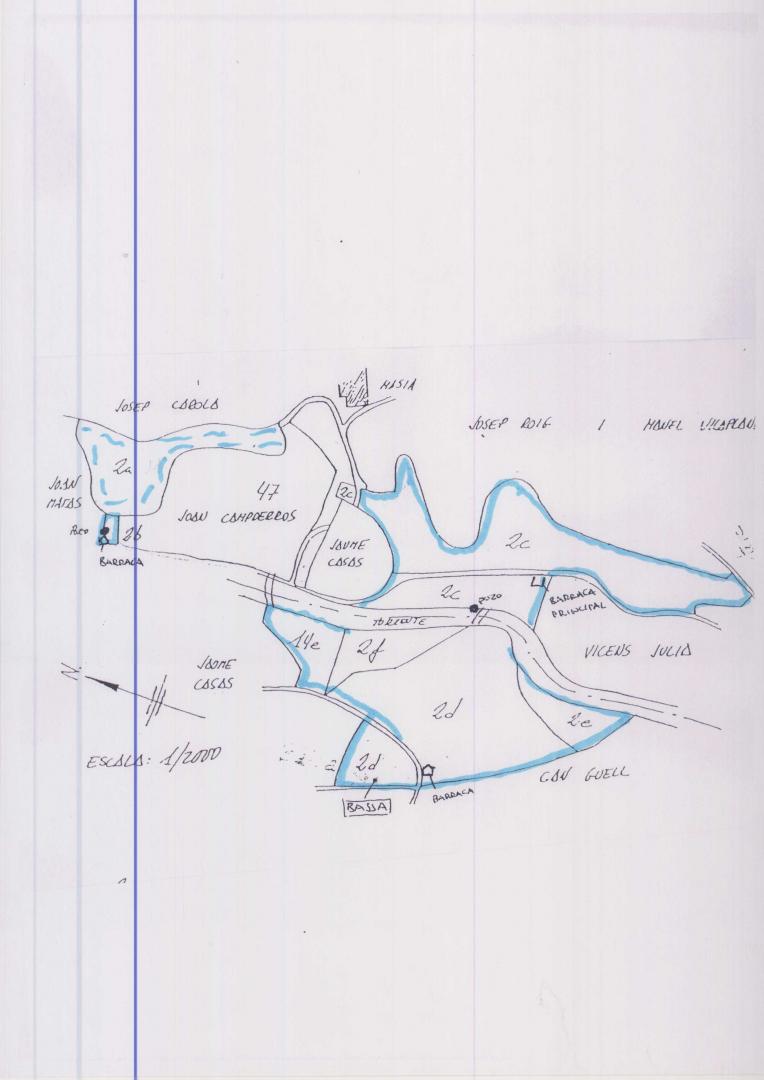 MASIA
JOSEP CAROLA
JOSEP ROIG I MANEL VILAPLAN
2a
JOAN
MATAS
47
JOAN CAMPDERROS
2c
Pozo
2b
BARRACA
JAUME
CASAS
2c
2c
POZO
BARRACA
PRINCIPAL
TORRENTE
14e
2f
VICENS JULIA
JAUME
CASAS
N
2d
2e
ESCALA: 1/2000
2d
CAN GUELL
BASSA
BARRACA